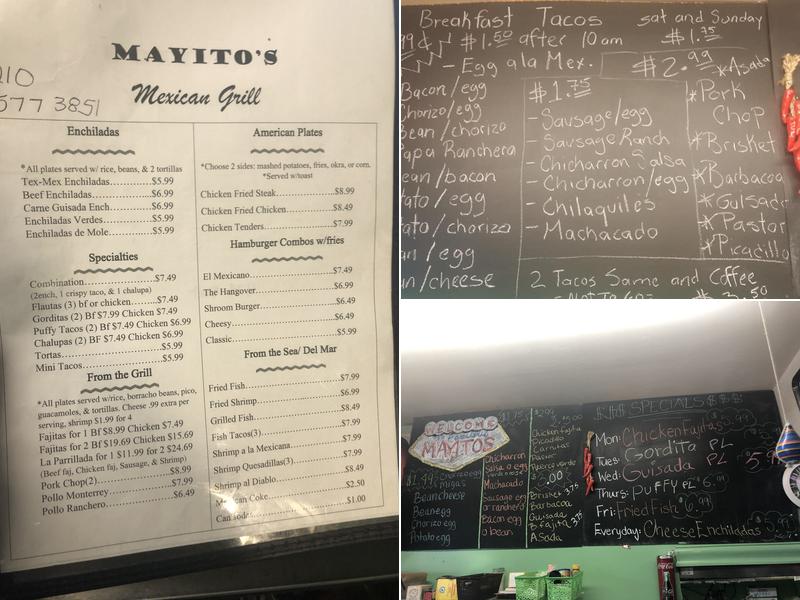 MAYITO'S
Mexican Grill
577 3851
Enchiladas
*All plates served w/ rice, beans, & 2 tortillas
Tex-Mex Enchiladas............$5.99
Beef Enchiladas..................$6.99
Carne Guisada Ench...........$6.99
Enchiladas Verdes..............$5.99
Enchiladas de Mole............$5.99
Specialties
Combination......................$7.49
(2ench, 1 crispy taco, & 1 chalupa)
Flautas (3) bf or chicken......$7.49
Gorditas (2) Bf $7.99 Chicken $7.49
Puffy Tacos (2) Bf $7.49 Chicken $6.99
Chalupas (2) BF $7.49 Chicken $6.99
Tortas...............................$5.99
Mini Tacos.......................$5.99
From the Grill
*All plates served w/rice, borracho beans, pico,
guacamoles, & tortillas. Cheese .99 extra per
serving, shrimp $1.99 for 4
Fajitas for 1 Bf $8.99 Chicken $7.49
Fajitas for 2 Bf $19.69 Chicken $15.69
La Parrillada for 1 $11.99 for 2 $24.69
(Beef faj, Chicken faj, Sausage, & Shrimp)
Pork Chop(2)....................$8.99
Pollo Monterrey................$7.99
Pollo Ranchero.................$6.49
American Plates
*Choose 2 sides: mashed potatoes, fries, okra, or corn.
*Served w/toast
Chicken Fried Steak...............$8.99
Chicken Fried Chicken............$8.49
Chicken Tenders....................$7.99
Hamburger Combos w/fries
El Mexicano.........................$7.49
The Hangover.......................$6.99
Shroom Burger.....................$6.49
Cheesy.................................$6.49
Classic.................................$5.99
From the Sea/ Del Mar
Fried Fish.............................$7.99
Fried Shrimp........................$6.99
Grilled Fish..........................$8.49
Fish Tacos(3)........................$7.99
Shrimp a la Mexicana............$7.99
Shrimp Quesadillas(3)...........$7.99
Shrimp al Diablo...................$8.49
Mexican Coke.......................$2.50
Can sodas.............................$1.00
Breakfast Tacos sat and Sunday
$1.50 after 10am $1.75
- Egg ala Mex.
Bacon/egg
Chorizo/egg
Bean/chorizo
Papa Ranchera
ean/bacon
tato/egg
tato/chorizo
an/egg
an/cheese
$1.75
- Sausage/egg
- Sausage Ranch
- Chicharron Salsa
- Chicharron/egg
- Chilaquiles
- Machacado
$2.99
*Asada
*Pork Chop
*Brisket
*Barbacoa
*Guisada
*Pastor
*Picadillo
2 Tacos Same and Coffee
WELCOME
MAYITOS
$1.49
Chorizo egg
migas
Bean cheese
Bean egg
Chorizo egg
Potato egg
$1.75
Chicharron
Salsa o egg
Machacado
sausage egg
or ranchero
Bacon egg
o bean
$2.99
Chicken fajita
Picadillo
Carnitas
Pastor
Puerco verde
$2.00
Brisket 3.75
Barbacoa
Guisada
B. fajita 3.75
Asada
$$$ SPECIALS $$$
Mon: Chicken Fajitas 5.99
Tues: Gordita PL
Wed: Guisada PL $5.9
Thurs: Puffy PL $6.
Fri: Fried Fish $6.99
Everyday: Cheese Enchiladas